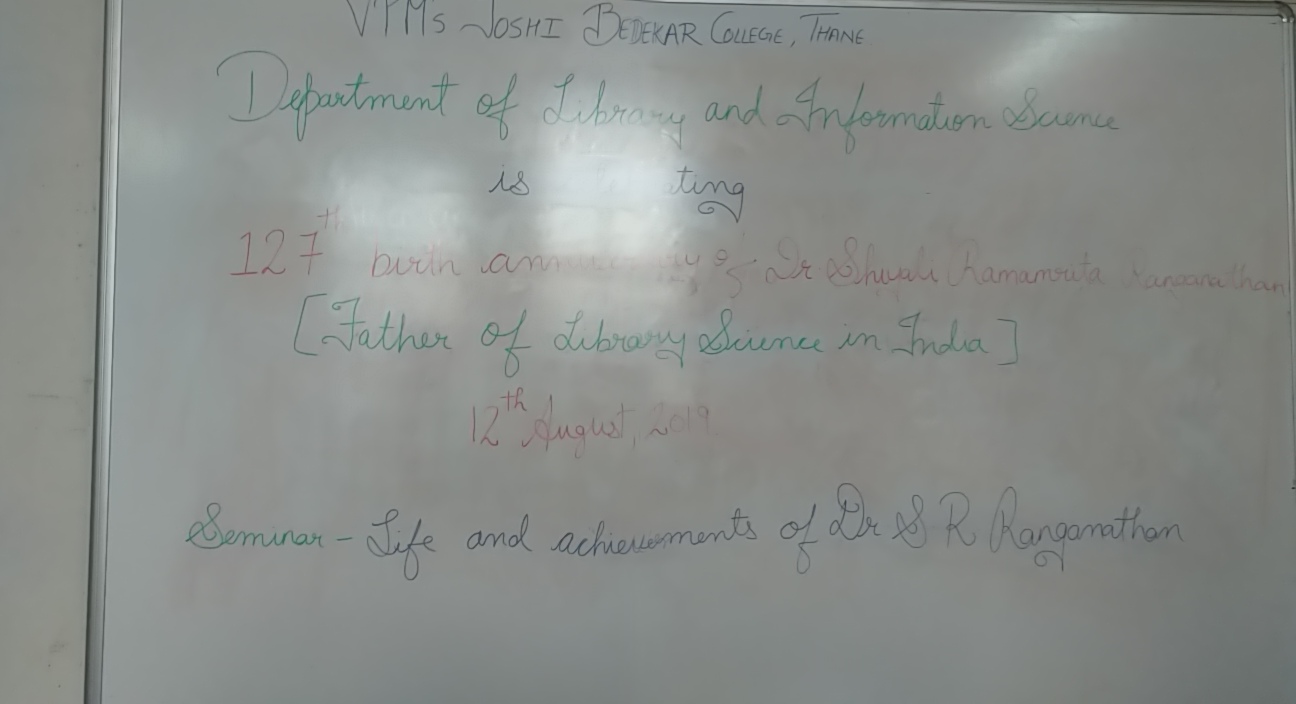 VPM's JOSHI BEDEKAR COLLEGE, THANE
Department of Library and Information Science
is ting
127th birth of Dr Shiyali Ramamrita Ranganathan
[Father of Library Science in India]
12th August, 2019
Seminar - Life and achievements of Dr S R Ranganathan